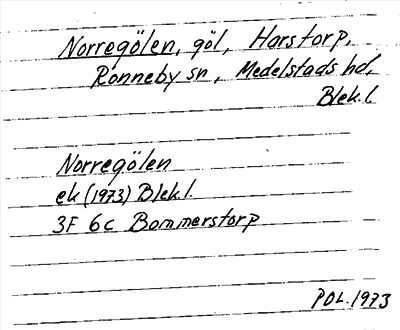 Norregölen, göl, Harstorp,
Ronneby sn, Medelstads hd,
Blek. l.
Norregölen
ek (1973) Blek. l.
3F 6c Bommerstorp
POL. 1973